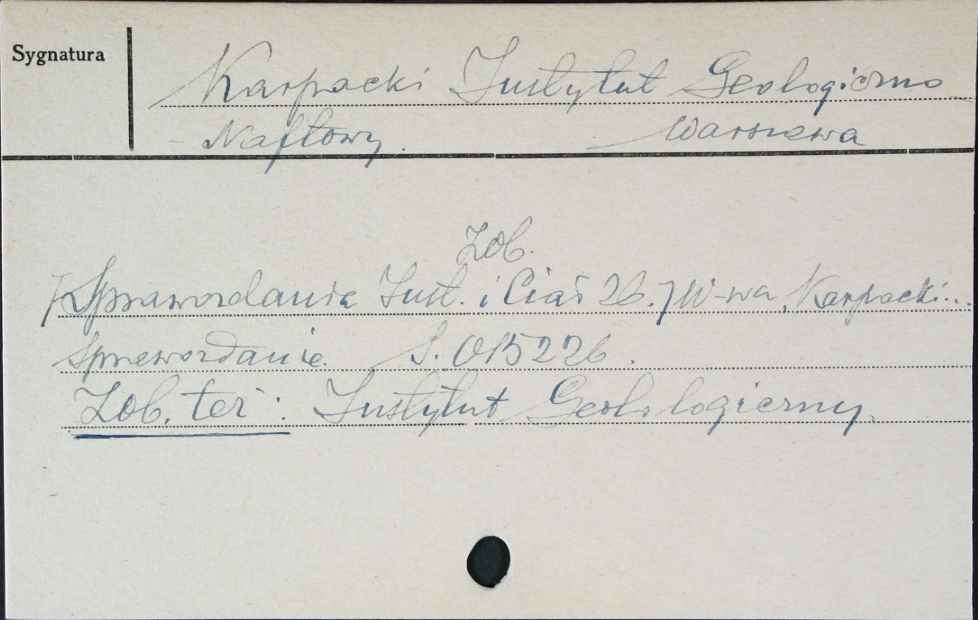 Sygnatura
Karpacki Instytut Geologiczno
- Naftowy. Warszawa
Zob.
[Sprawozdania Inst. i Ciał 26.] W-wa, Karpacki...
Sprawozdanie. S. 015226.
Zob. też: Instytut Geologiczny.